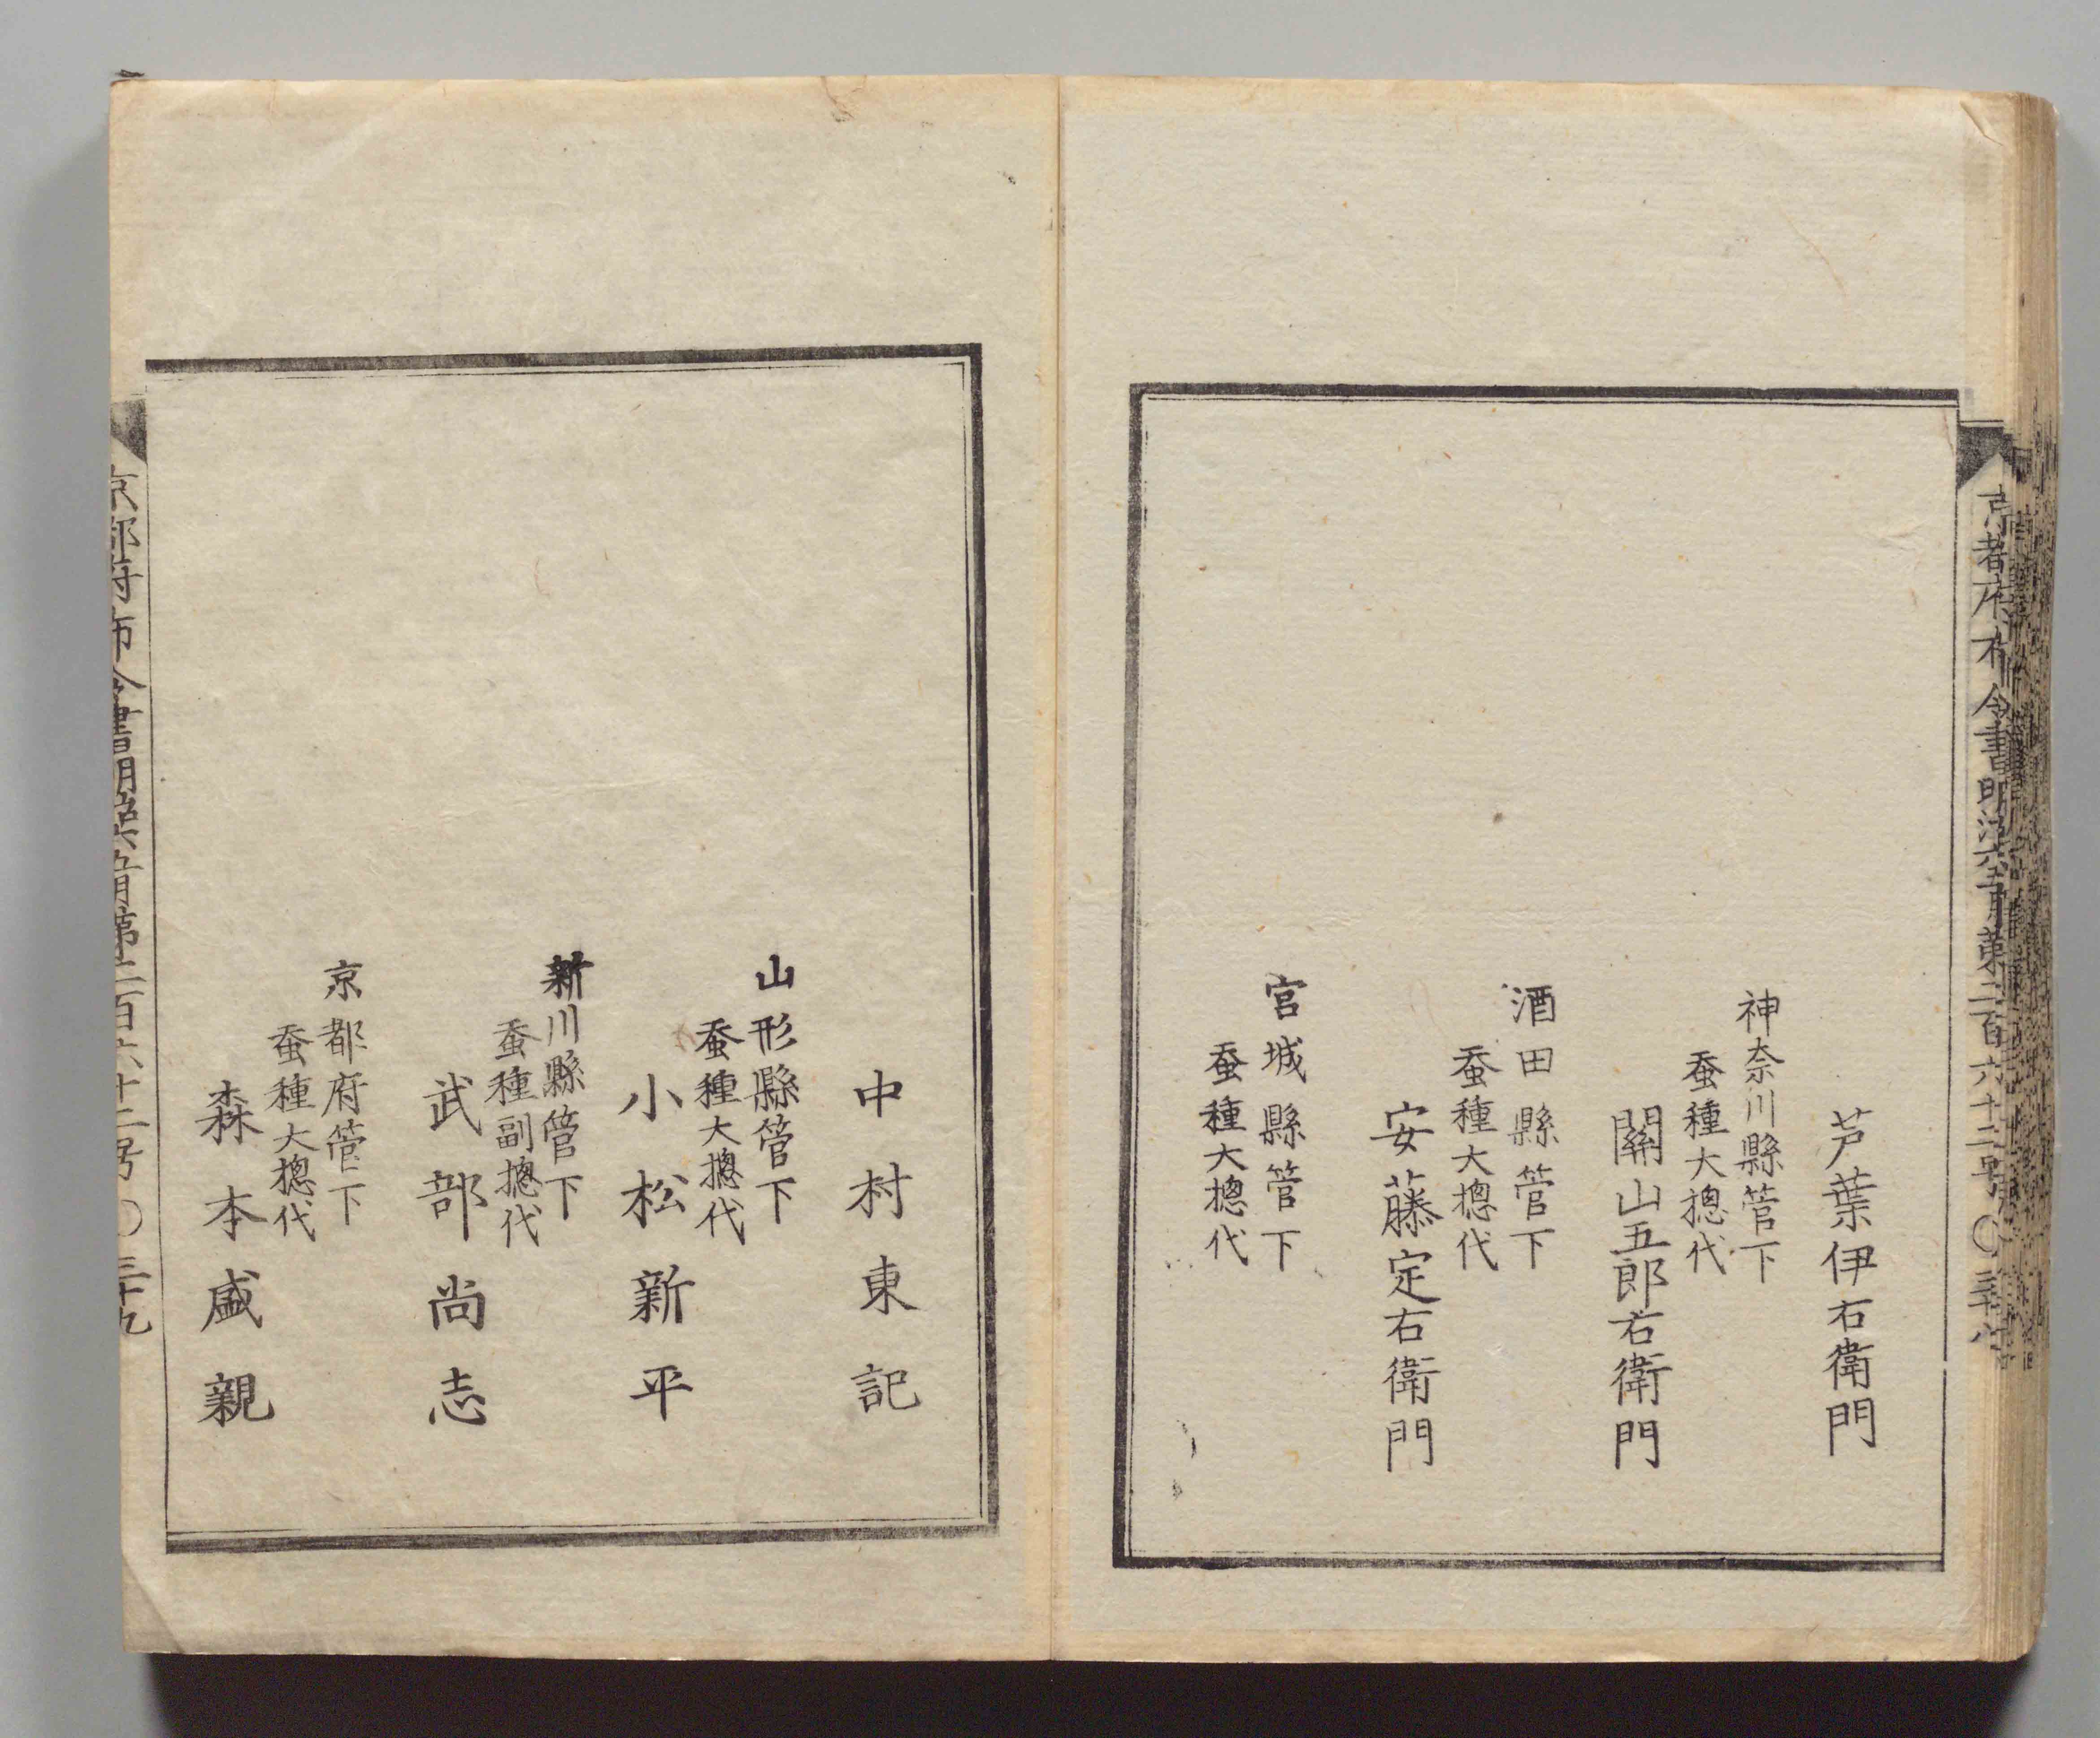 京都府布令書明治六年五月第二百六十二号〇三十八
芦葉伊右衛門
神奈川縣管下
蚕種大摠代
關山五郎右衛門
酒田縣管下
蚕種大摠代
安藤定右衛門
宮城縣管下
蚕種大摠代
中村東記
山形縣管下
蚕種大摠代
小松新平
新川縣管下
蚕種副摠代
武部尚志
京都府管下
蚕種大摠代
森本盛親
京都府布令書明治六年五月第二百六十二号〇三十九